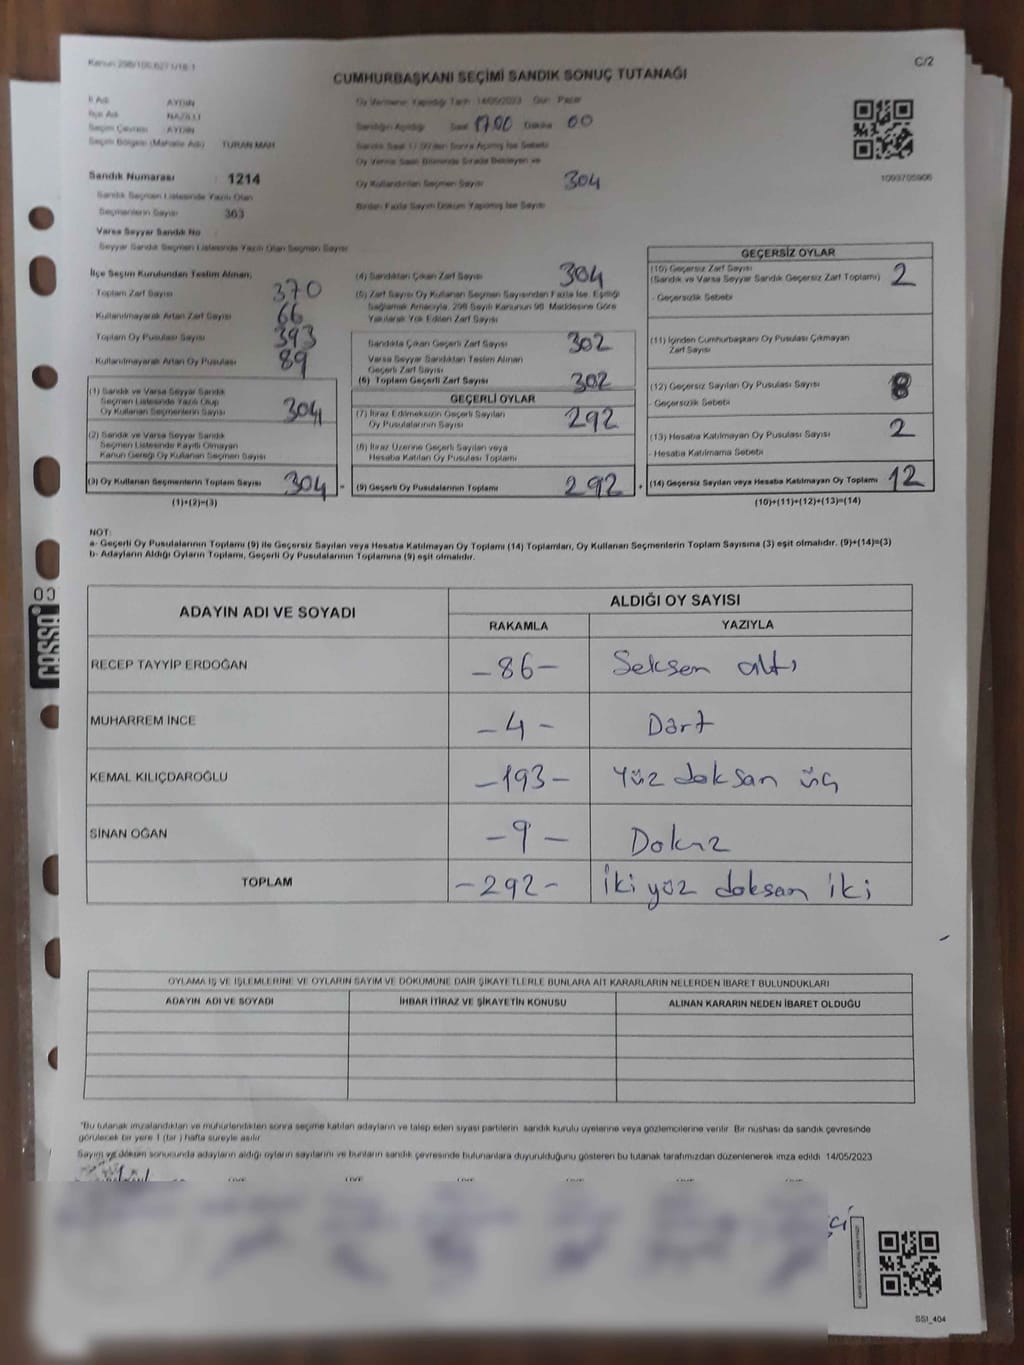 Kanun 298/100,6271/18-1
C/2
CUMHURBAŞKANI SEÇİMİ SANDIK SONUÇ TUTANAĞI
İl Adı AYDIN
İlçe Adı NAZİLLİ
Seçim Çevresi AYDIN
Seçim Bölgesi (Mahalle Adı) TURAN MAH
Sandık Numarası : 1214
Sandık Seçmen Listesinde Yazılı Olan
Seçmenlerin Sayısı 363
Varsa Seyyar Sandık No
Seyyar Sandık Seçmen Listesinde Yazılı Olan Seçmen Sayısı
Oy Vermenin Yapıldığı Tarih : 14/05/2023 Gün : Pazar
Sandığın Açıldığı Saat 17.00 Dakika 00
Sandık Saat 17.00'den Sonra Açılmış İse Sebebi
Oy Verme Saati Bitiminde Sırada Bekleyen ve
Oy Kullandırılan Seçmen Sayısı 304
Birden Fazla Sayım Döküm Yapılmış İse Sayısı
1093705906
İlçe Seçim Kurulundan Teslim Alınan;
- Toplam Zarf Sayısı 370
- Kullanılmayarak Artan Zarf Sayısı 66
Toplam Oy Pusulası Sayısı 393
- Kullanılmayarak Artan Oy Pusulası 89
(1) Sandık ve Varsa Seyyar Sandık
Seçmen Listesinde Yazılı Olup
Oy Kullanan Seçmenlerin Sayısı 304
(2) Sandık ve Varsa Seyyar Sandık
Seçmen Listesinde Kayıtlı Olmayan
Kanun Gereği Oy Kullanan Seçmen Sayısı
(3) Oy Kullanan Seçmenlerin Toplam Sayısı 304 =
(1)+(2)=(3)
(4) Sandıktan Çıkan Zarf Sayısı 304
(5) Zarf Sayısı Oy Kullanan Seçmen Sayısından Fazla İse, Eşitliği
Sağlamak Amacıyla, 298 Sayılı Kanunun 98. Maddesine Göre
Yakılarak Yok Edilen Zarf Sayısı
Sandıkta Çıkan Geçerli Zarf Sayısı 302
Varsa Seyyar Sandıktan Teslim Alınan
Geçerli Zarf Sayısı
(6) Toplam Geçerli Zarf Sayısı 302
GEÇERLİ OYLAR
(7) İtiraz Edilmeksizin Geçerli Sayılan
Oy Pusulalarının Sayısı 292
(8) İtiraz Üzerine Geçerli Sayılan veya
Hesaba Katılan Oy Pusulası Toplamı
(9) Geçerli Oy Pusulalarının Toplamı 292 +
GEÇERSİZ OYLAR
(10) Geçersiz Zarf Sayısı
(Sandık ve Varsa Seyyar Sandık Geçersiz Zarf Toplamı) 2
- Geçersizlik Sebebi
(11) İçinden Cumhurbaşkanı Oy Pusulası Çıkmayan
Zarf Sayısı
(12) Geçersiz Sayılan Oy Pusulası Sayısı 8
- Geçersizlik Sebebi
(13) Hesaba Katılmayan Oy Pusulası Sayısı 2
- Hesaba Katılmama Sebebi
(14) Geçersiz Sayılan veya Hesaba Katılmayan Oy Toplamı 12
(10)+(11)+(12)+(13)=(14)
NOT:
a- Geçerli Oy Pusulalarının Toplamı (9) ile Geçersiz Sayılan veya Hesaba Katılmayan Oy Toplamı (14) Toplamları, Oy Kullanan Seçmenlerin Toplam Sayısına (3) eşit olmalıdır. (9)+(14)=(3)
b- Adayların Aldığı Oyların Toplamı, Geçerli Oy Pusulalarının Toplamına (9) eşit olmalıdır.
ADAYIN ADI VE SOYADI ALDIĞI OY SAYISI
RAKAMLA YAZIYLA
RECEP TAYYİP ERDOĞAN -86- Seksen altı
MUHARREM İNCE -4- Dört
KEMAL KILIÇDAROĞLU -193- Yüz doksan üç
SİNAN OĞAN -9- Dokuz
TOPLAM -292- İki yüz doksan iki
OYLAMA İŞ VE İŞLEMLERİNE VE OYLARIN SAYIM VE DÖKÜMÜNE DAİR ŞİKAYETLERLE BUNLARA AİT KARARLARIN NELERDEN İBARET BULUNDUKLARI
ADAYIN ADI VE SOYADI İHBAR İTİRAZ VE ŞİKAYETİN KONUSU ALINAN KARARIN NEDEN İBARET OLDUĞU
*Bu tutanak imzalandıktan ve mühürlendikten sonra seçime katılan adayların ve talep eden siyasi partilerin sandık kurulu üyelerine veya gözlemcilerine verilir. Bir nüshası da sandık çevresinde
görülecek bir yere 1 (bir) hafta süreyle asılır.
Sayım ve döküm sonucunda adayların aldığı oyların sayılarını ve bunların sandık çevresinde bulunanlara duyurulduğunu gösteren bu tutanak tarafımızdan düzenlenerek imza edildi. 14/05/2023
SSI_404
cassa